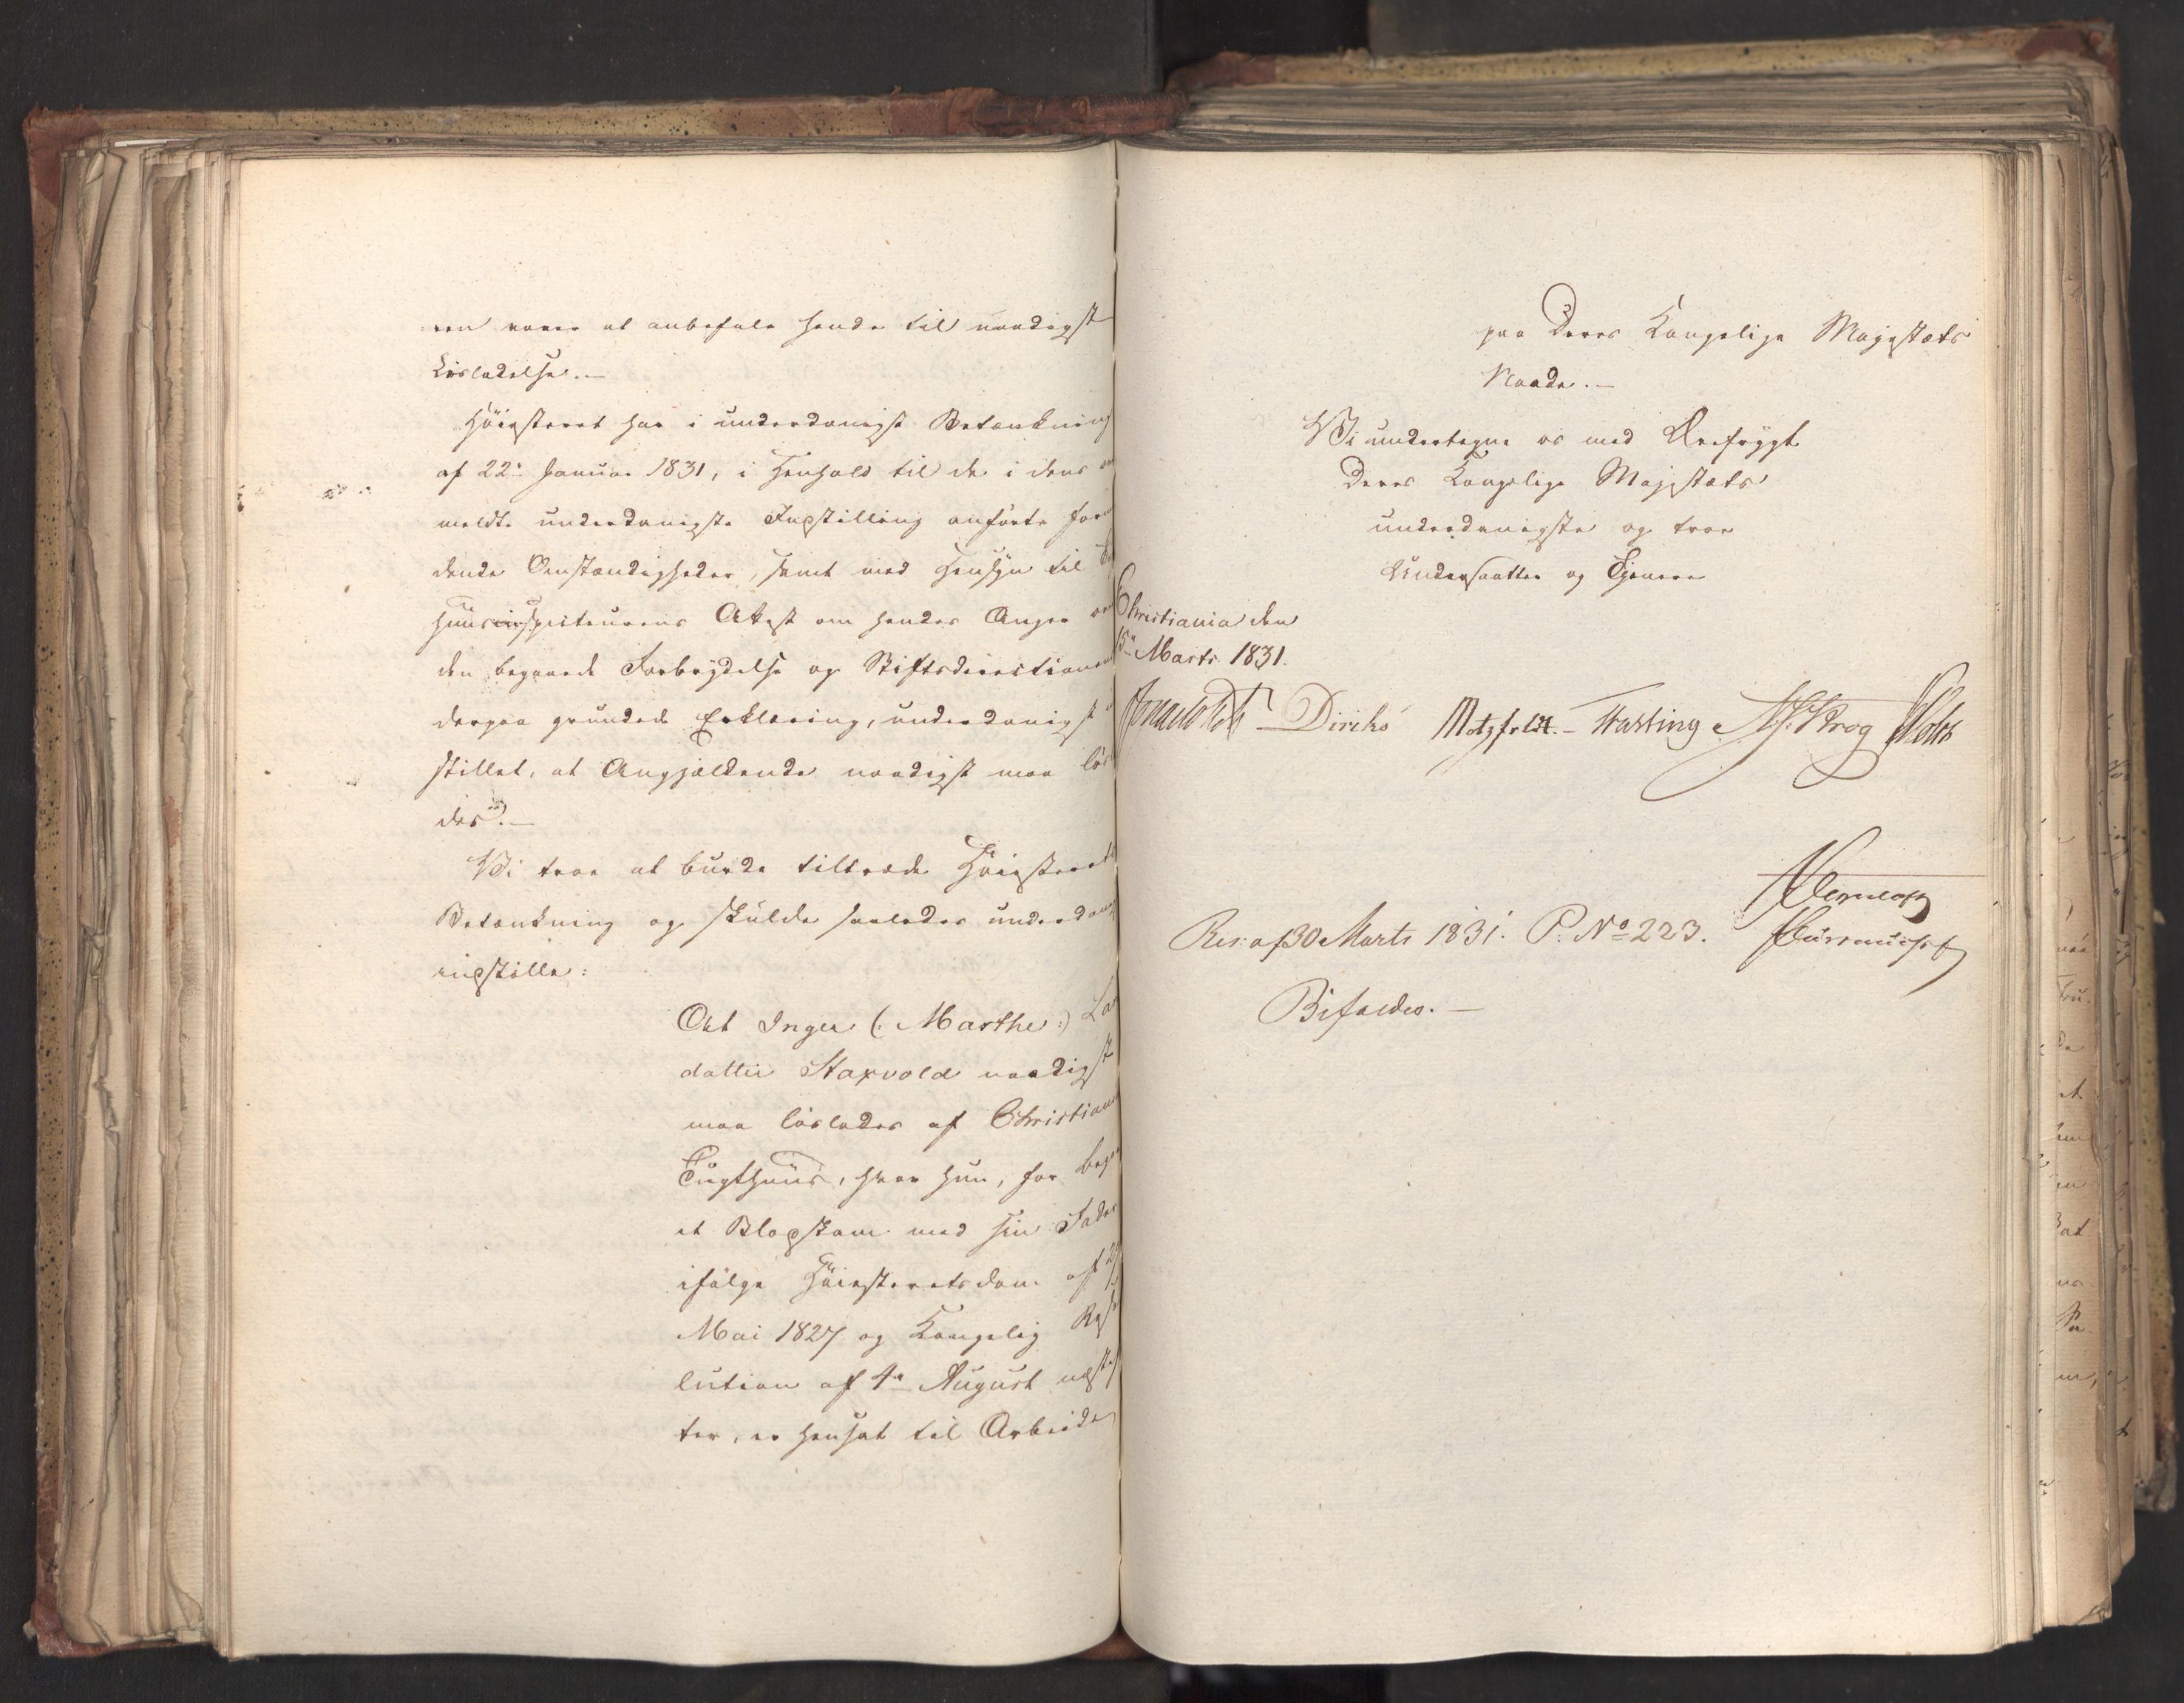 ren vover at anbefale hende til naadigst
Løsladelse.—
Höiesteret har i underdanigst Betænkning
af 22de Januar 1831, i Henhold til de i dens
meldte underdanigste Indstilling anförte
dende Omstændigheder, samt med Hensyn til
huusinspecteurens Attest om hendes Anger
den begaaede Forbrydelse og Stiftsdirectionens
derpaa grundede Erklæring, underdanigst
stillet, at Angjældende naadigst maa lös
des.—
Vi troe at burde tiltræde Höiesterets
Betænkning og skulde saaledes underdanigst
indstille:
At Inger (: Marthe :) Lars
datter Haxvold naadigst
maa löslades af Christiania
Tugthuus, hvor hun, for begaa
et Blodskam med sin Fader
ifölge Höiesteretsdom af
Mai 1827 og Kongelig Reso
lution af 4de August næstef
ter, er hensat til Arbeide
paa Deres Kongelige Majestæts
Naade.—
Vi undertegne os med Ærefrygt
Deres Kongelige Majestæts
underdanigste og troe
Undersaatter og Tjenere
Christiania den
15de Marts 1831.
Diriks Motzfeldt.— Fasting Krog Holst
Res: af 30 Marts 1831. P. No 223.
Bifaldes.—